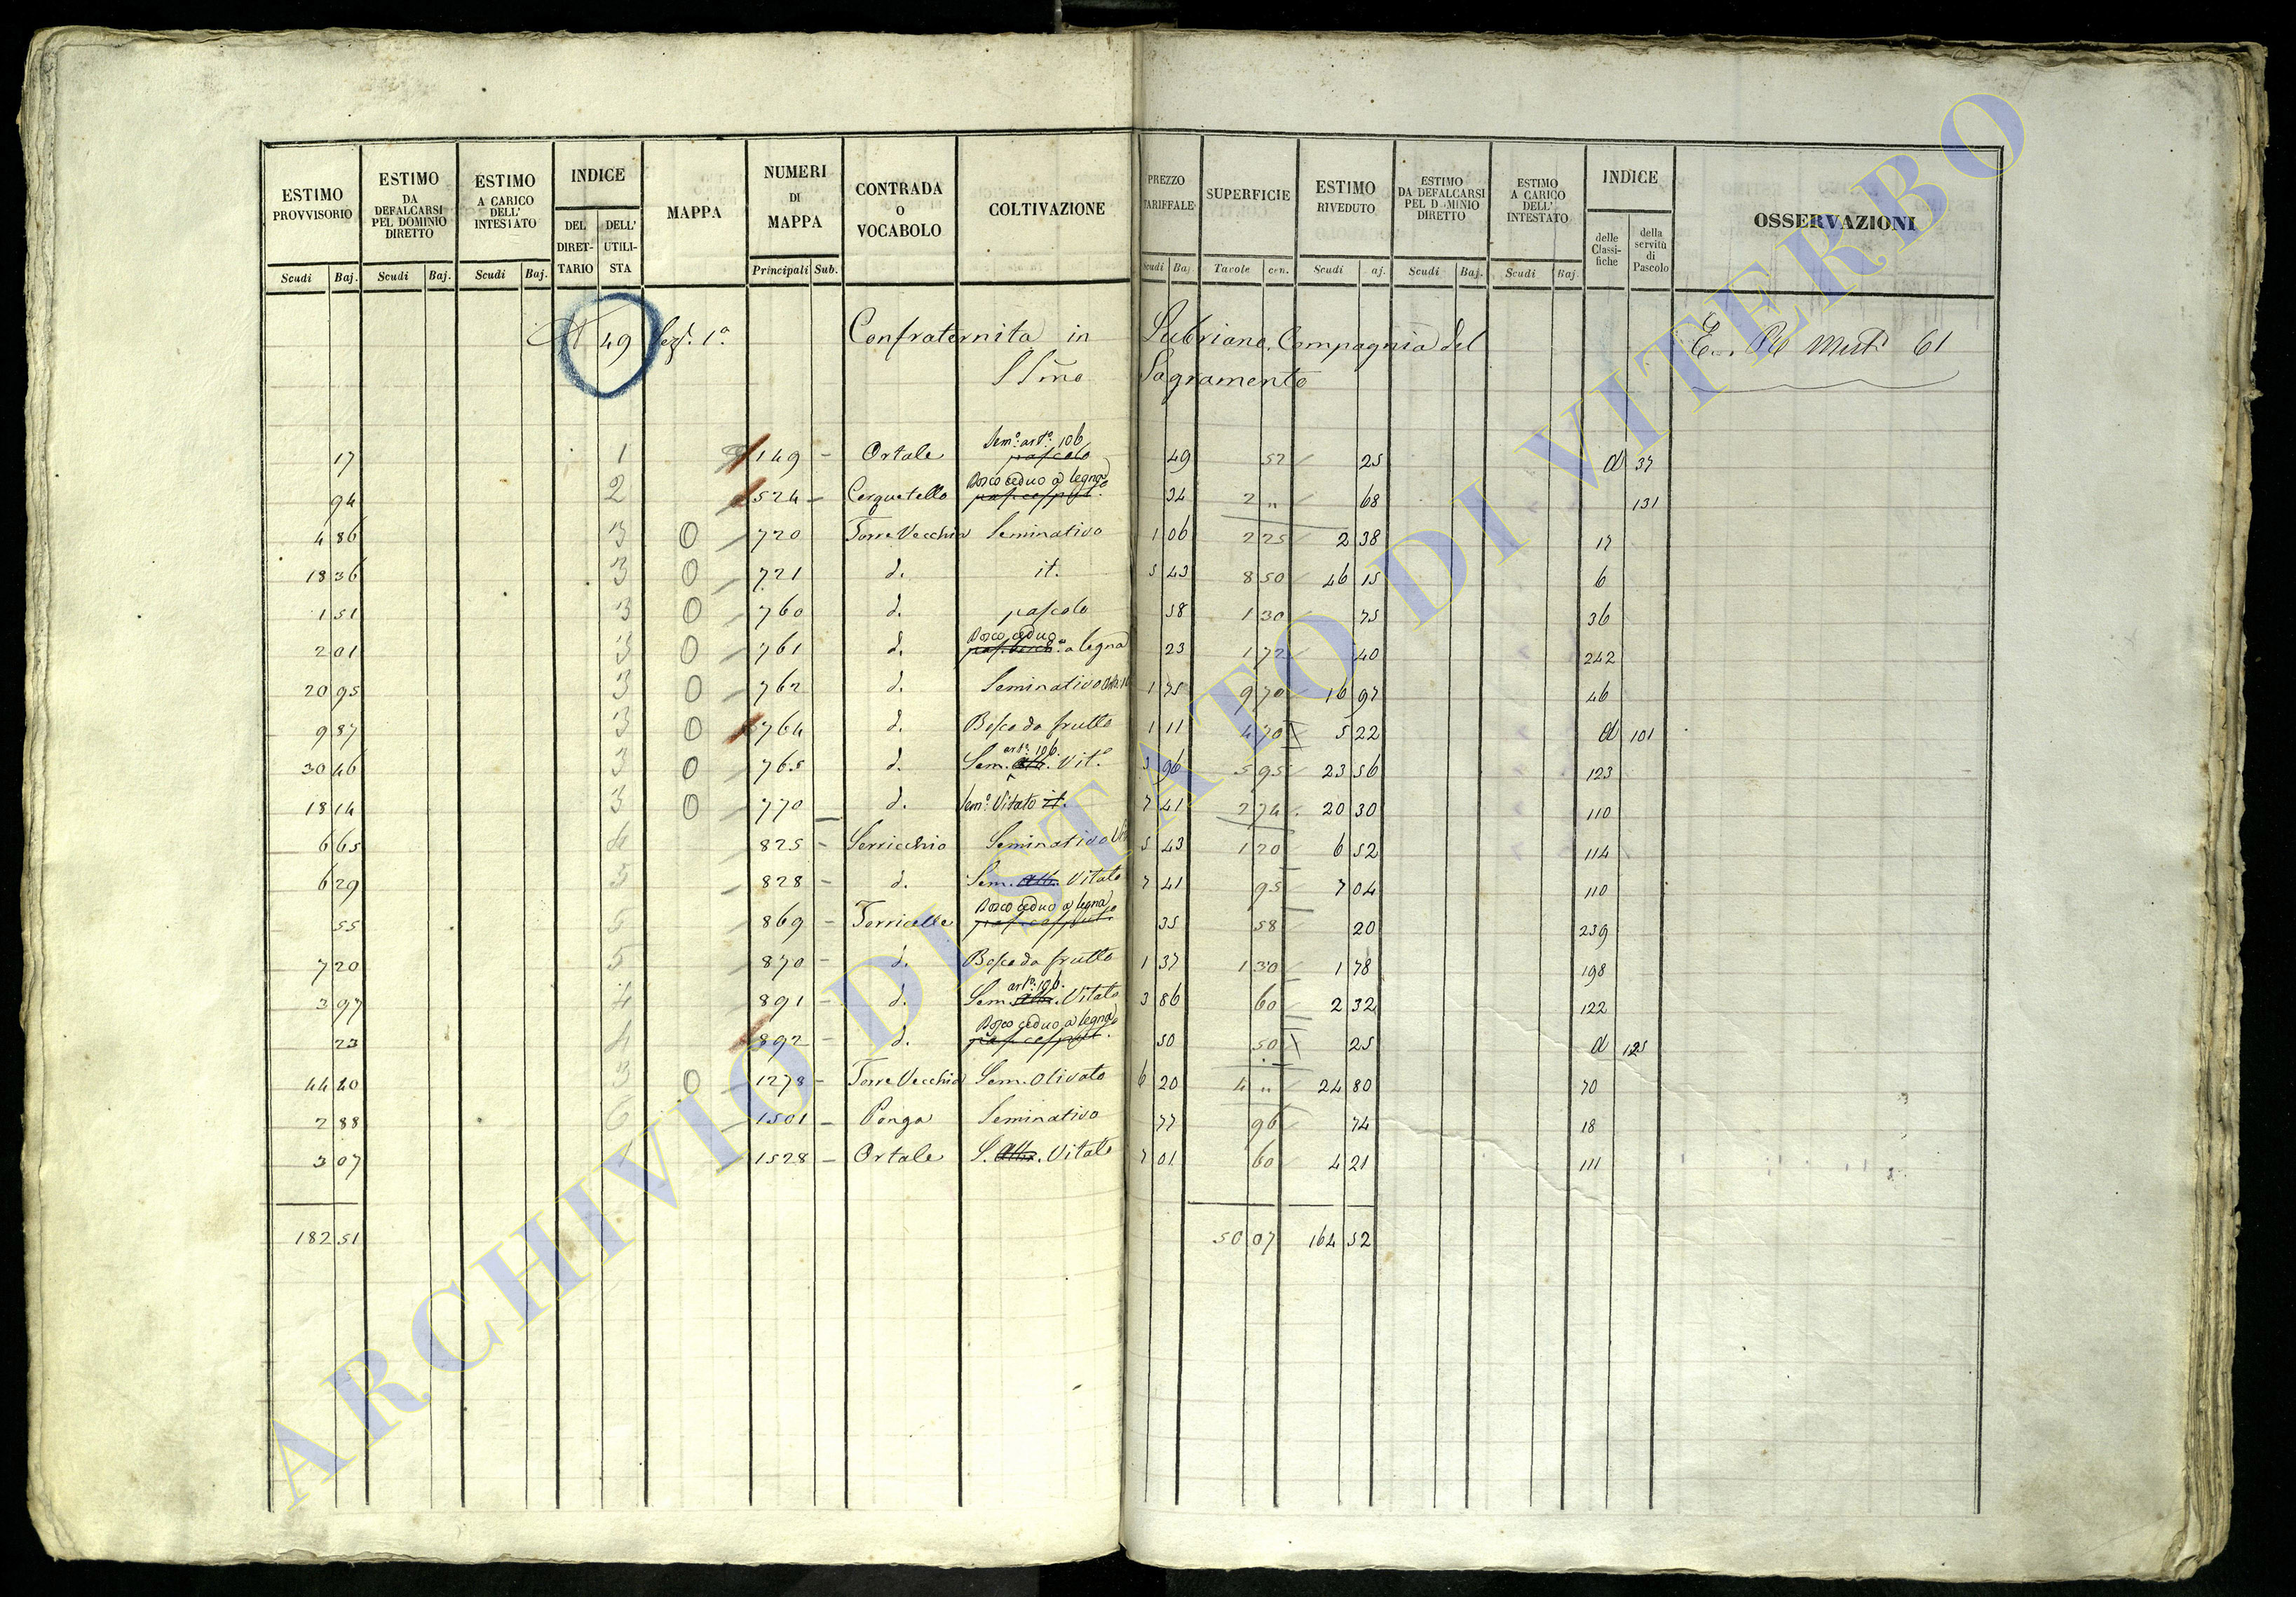 ESTIMO PROVVISORIO Scudi Baj. | ESTIMO DA DEFALCARSI PEL DOMINIO DIRETTO Scudi Baj. | ESTIMO A CARICO DELL' INTESTATO Scudi Baj. | INDICE DEL DIRETTARIO DELL' UTILISTA | MAPPA | NUMERI DI MAPPA Principali Sub. | CONTRADA O VOCABOLO | COLTIVAZIONE | PREZZO TARIFFALE Scudi Ba | SUPERFICIE Tavole cen. | ESTIMO RIVEDUTO Scudi aj. | ESTIMO DA DEFALCARSI PEL DOMINIO DIRETTO Scudi Baj. | ESTIMO A CARICO DELL' INTESTATO Scudi Baj. | INDICE delle Classifiche della servitù di Pascolo | OSSERVAZIONI
49 Sez. 1a Confraternita in Lubriano. Compagnia del 61
SSmo Sagramento
17 1 149 - Ortale Sem.o art.o 106 pascolo 49 52 25 d 37
94 2 524 - Cerquetello Bosco ceduo a legna 34 2 " 68 131
4 86 3 0 720 Torre Vecchia Seminativo 1 06 2 25 2 38 17
18 36 3 0 721 d. it. 5 43 8 50 46 15 6
1 51 3 0 760 d. pascolo 58 1 30 75 36
2 01 3 0 761 d. Bosco ceduo a legna 23 1 72 40 242
20 95 3 0 762 d. Seminativo 1 75 9 70 16 97 46
9 87 3 0 764 d. Bosco da frutto 1 11 4 70 5 22 d 101
30 46 3 0 765 d. Sem. alb. art.o 106 Vit.o 3 96 5 95 23 56 123
18 14 3 0 770 d. Sem.o Vitato it. 7 41 2 74 20 30 110
6 65 4 825 - Serricchio Seminativo Vit 5 43 1 20 6 52 114
6 29 5 828 - d. Sem. alb. Vitato 7 41 95 7 04 110
55 5 869 - Torricelle Bosco ceduo a legna 35 58 20 239
7 20 5 870 - d. Bosco da frutto 1 37 1 30 1 78 198
3 97 4 891 - d. Sem. alb. art.o 106 Vitato 3 86 60 2 32 122
23 4 892 - d. Bosco ceduo a legna 50 50 25 d 125
44 40 3 0 1278 - Torre Vecchia Sem. Olivato 6 20 4 " 24 80 70
2 88 6 1501 - Ponga Seminativo 77 96 74 18
3 07 1 1528 - Ortale S. Alb. Vitato 7 01 60 4 21 111
182 51 50 07 164 52
ARCHIVIO DI STATO DI VITERBO